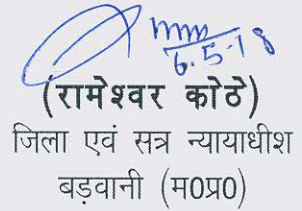 6.5-18
(रामेश्वर कोठे)
जिला एवं सत्र न्यायाधीश
बड़वानी (म0प्र0)